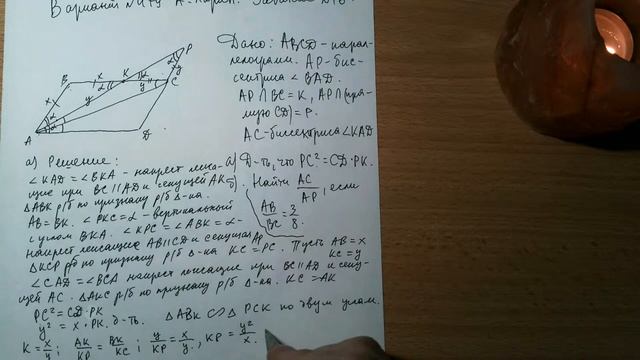 Вариант №179 А. Ларин. Задание №16.
B x K y C P A D
Дано: ABCD - парал-
лелограмм. AP - бис-
сектриса ∠BAD.
AP∩BC = K, AP∩(пря-
мую CD) = P.
AC - биссектриса ∠KAD
а) Решение:
а) Д-ть, что PC² = CD·PK.
б). Найти AC/AP, если
AB/BC = 3/8.
∠KAD = ∠BKA - накрест лежа-
щие при BC∥AD и секущей AK
△ABK р/б по признаку р/б △-ка.
AB = BK. ∠PKC = α - вертикальный
с углом BKA. ∠KPC = ∠ABK = α -
накрест лежащие AB∥CD и секущая AP
△KCP рб по признаку р/б △-ка KC = PC. Пусть AB = x
KC = y
∠CAD = ∠BCA накрест лежащие при BC∥AD и секу-
щей AC. △AKC р/б по признаку р/б △-ка. KC = AK
PC² = CD·PK
y² = x·PK. д-ть. △ABK ∾ △PCK по двум углам.
K = x/y; AK/KP = BK/KC; y/KP = x/y, KP = y²/x.